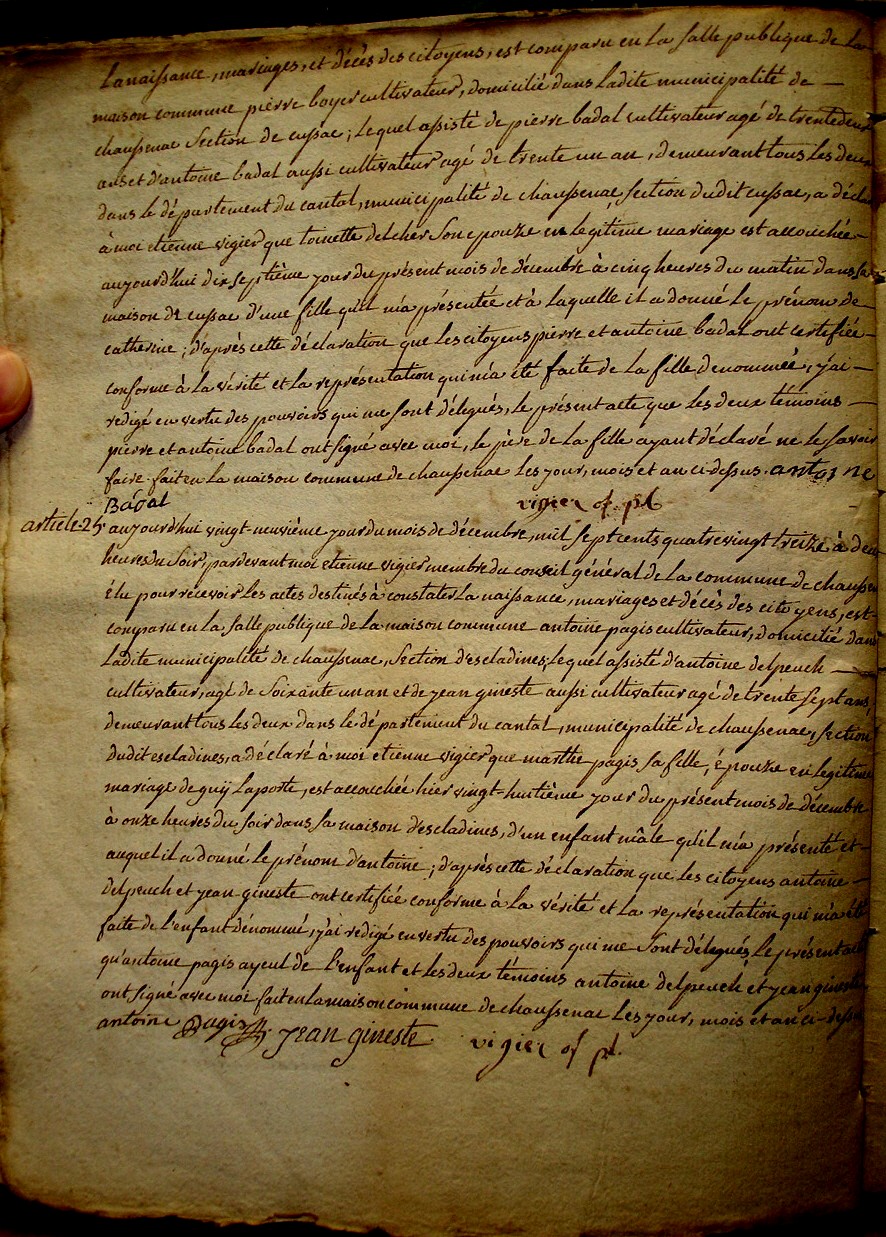 la naissance, mariages, et décès des citoyens, est comparu en la salle publique de la
maison commune pierre boyer cultivateur, domicilié dans ladite municipalité de —
chaussenac Section de cussac; lequel assisté de pierre badal cultivateur agé de trente deux
ans et d'antoine badal aussi cultivateur agé de trente un an, demeurant tous les deux
dans le département du cantal, municipalité de chaussenac, section dudit cussac, a déclaré
à moi etienne vigier que toinette delcher Son epouze en legitime mariage est accouchée —
aujourd'hui dix septième jour du présent mois de décembre à cinq heures du matin dans sa
maison de cussac d'une fille qu'il m'a présentée et à laquelle il a donné le prénom de —
catherine; d'après cette déclaration que les citoyens pierre et antoine badal ont certifiée —
conforme à la vérité et la représentation qui m'a été faite de la fille denommée, j'ai —
redigé en vertu des pouvoirs qui me sont délegués, le présent acte que les deux témoins —
pierre et antoine badal ont signé avec moi, le père de la fille ayant déclaré ne le savoir
faire. fait en la maison commune de chaussenac les jour, mois et an ci-dessus. antoine
Badal vigier of. pl.
article 25 aujourd'hui vingt-neuvième jour du mois de décembre, mil sept cents quatre vingt treize à deux
heures du Soir, pardevant moi etienne vigier membre du conseil général de la commune de chaussenac
élu pour recevoir les actes destinés à constater la naissance, mariages et décès des citoyens, est
comparu en la Salle publique de la maison commune antoine pagis cultivateur, domicilié dans
ladite municipalité de chaussenac, Section d'escladines; lequel assisté d'antoine delpeuch —
cultivateur, agé de Soixante un an et de jean gineste aussi cultivateur agé de trente sept ans,
demeurant tous les deux dans le département du cantal, municipalité de chaussenac, section
dudit escladines, a déclaré à moi etienne vigier que marthe pagis sa fille, épouze en legitime
mariage de guÿ Laporte, est accouchée hier vingt-huitième jour du présent mois de décembre
à onze heures du soir dans sa maison d'escladines, d'un enfant mâle qu'il m'a présenté et —
auquel il a donné le prénom d'antoine; d'après cette déclaration que les citoyens antoine —
delpeuch et jean gineste ont certifiée conforme à la vérité et la représentation qui m'a été
faite de l'enfant dénommé, j'ai redigé en vertu des pouvoirs qui me Sont délegués, le présent acte
qu'antoine pagis ayeul de l'enfant et les deux témoins antoine delpeuch et jean gineste
ont signé avec moi fait en la maison commune de chaussenac les jour, mois et an ci-dessus
antoine Pagis jean gineste vigier of pl.